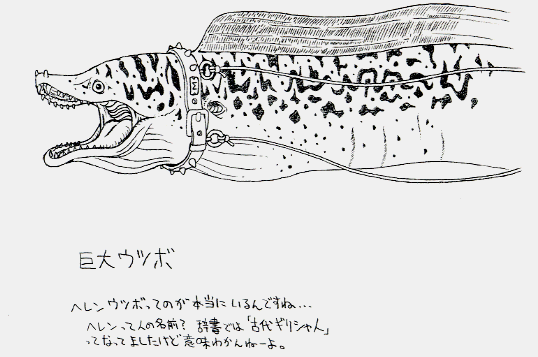 巨大ウツボ
ヘレンウツボってのが本当にいるんですね...
ヘレンって人の名前? 辞書では「古代ギリシャ人」
ってなってましたけど意味わかんねーよ。